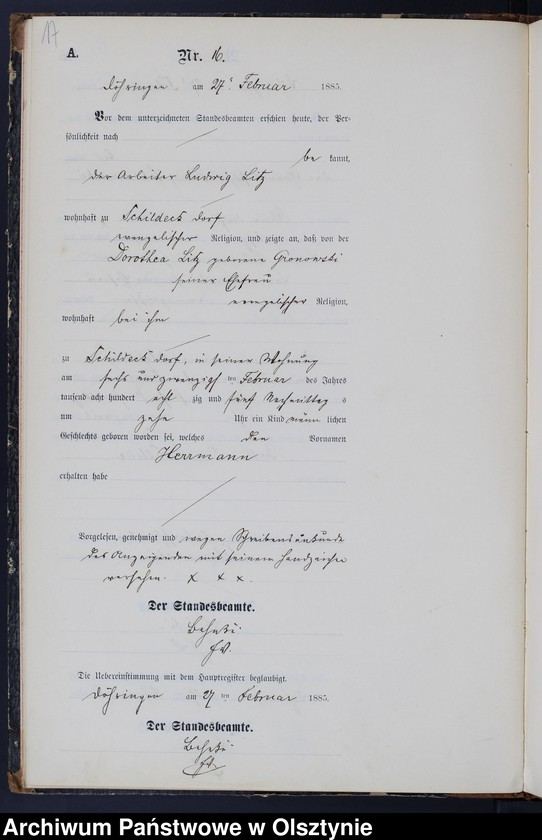 17
A.
Nr. 16.
Döhringen am 27t Februar 1885.
Vor dem unterzeichneten Standesbeamten erschien heute, der Per-
sönlichkeit nach
be kannt,
der Arbeiter Ludwig Litz
wohnhaft zu Schildeck dorf
evangelischer Religion, und zeigte an, daß von der
Dorothea Litz geborene Gronowski
seiner Ehefrau
evangelischer Religion,
wohnhaft bei ihm
zu Schildeck dorf, in seiner Wohnung
am sechs und zwanzigsten Februar des Jahres
tausend acht hundert acht zig und fünf Nachmittag s
um zehn Uhr ein Kind männ lichen
Geschlechts geboren worden sei, welches den Vornamen
Herrmann
erhalten habe
Vorgelesen, genehmigt und wegen Schreibensunkunde
des Anzeigenden mit seinem Handzeichen
versehen. x x x.
Der Standesbeamte.
Die Uebereinstimmung mit dem Hauptregister beglaubigt.
Döhringen am 27 ten Februar 1885.
Der Standesbeamte.
Archiwum Państwowe w Olsztynie